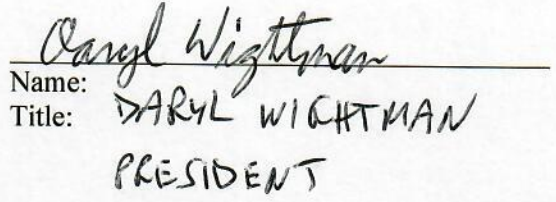 Daryl Wightman
Name:
Title: DARYL WIGHTMAN
PRESIDENT